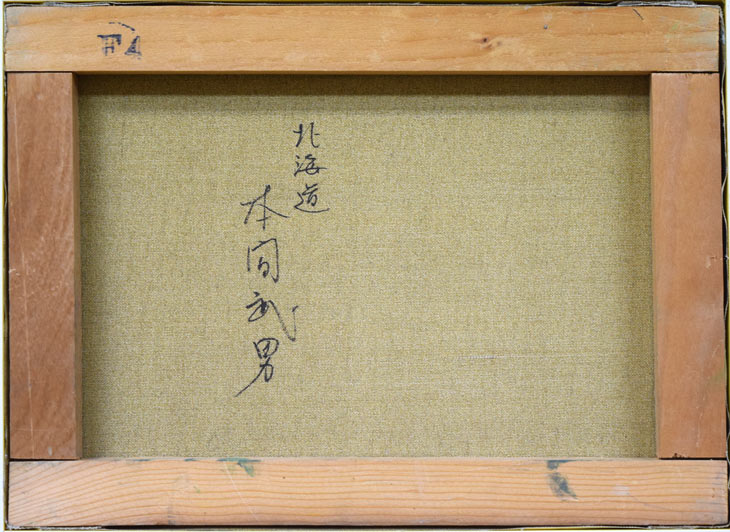 F4
北海道
本間武男